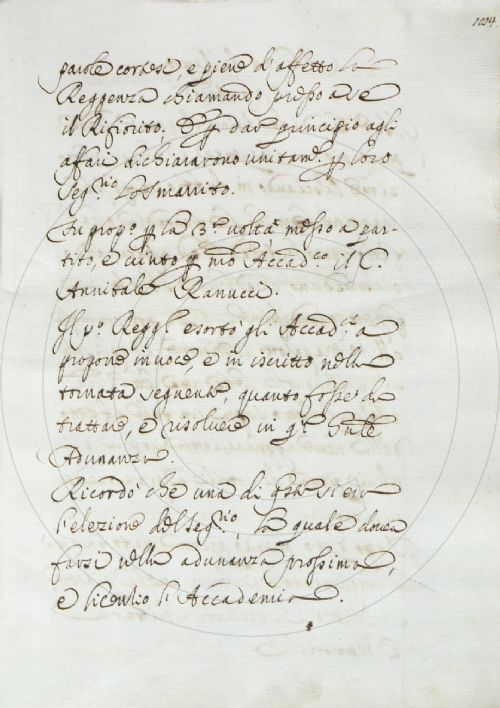 parole cortesi, e piene d'affetto la
Reggenza chiamando presso a se
il Rifiorito. E p dar principio agli
affari dichiararono unitam.e p loro
Seg.rio lo Smarrito.
Fu prop.o p la 3.a volta messo a par-
tito, e vinto p nro Accad.co il C.
Annibale Ranucci.
Il p.o Regg.e esortò gli Accad.ci a
propone in voce, e in iscritto nella
tornata seguente, quanto fosse da
trattare, e risolvere in
Adunanza.
Ricordò che una di queste si era
l'elezione del Seg.rio, la quale dovea
farsi nella adunanza prossima,
e licenziò l'Accademia.